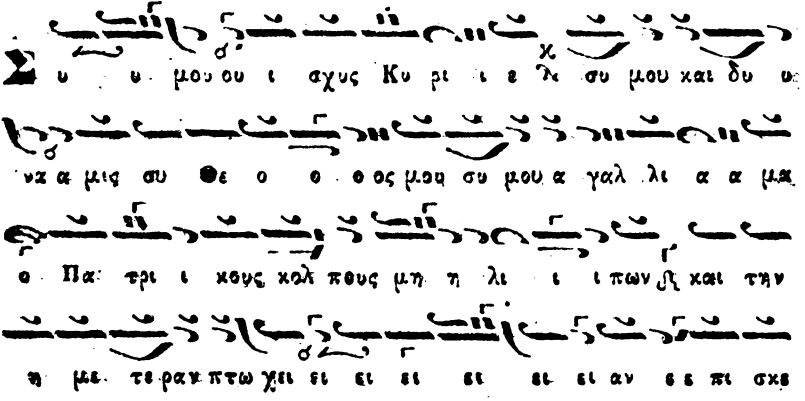 Σ υ υ μου ου ι σχυς Κυ ρι ι ε συ μου και δυ υ
να α μις συ Θε ο ο ο ος μου συ μου α γαλ λι α α μα
ο Πα τρι ι κους κολ πους μη η λι ι ι πων και την
η με τε ραν πτω χει ει ει ει ει ει ει αν ε ε πι σκε